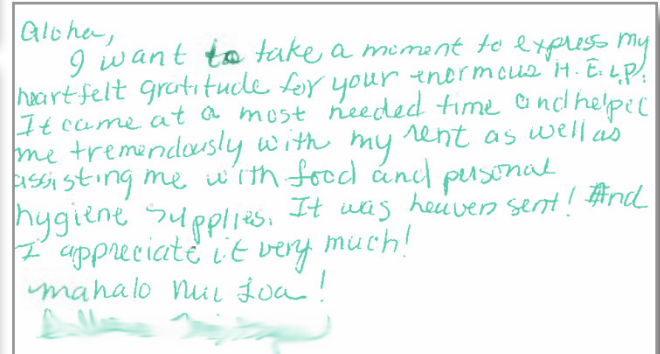 Aloha,
I want to take a moment to express my
heartfelt gratitude for your enormous H.E.L.P.
It came at a most needed time and helped
me tremendously with my rent as well as
assisting me with food and personal
hygiene supplies. It was heaven sent! And
I appreciate it very much!
mahalo nui loa!